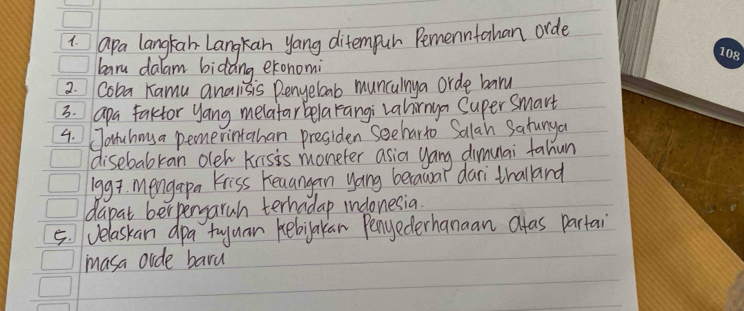 1. apa langkah Langkah yang ditempuh Pemerintahan orde
baru dalam bidang ekonomi
2. Coba Kamu analisis Penyebab munculnya Orde baru
3. apa Faktor yang melatarbelakangi Lahirnya Super Smart
4. Jatuhnya pemerintahan presiden Soeharto Salah Satunya
disebabkan oleh krisis moneter asia yang dimulai tahun
1997. mengapa Kriss keuangan yang berawar dari thailand
dapat berpengaruh terhadap indonesia.
5. Jelaskan apa tujuan kebijakan Penyederhanaan atas partai
masa orde baru
108